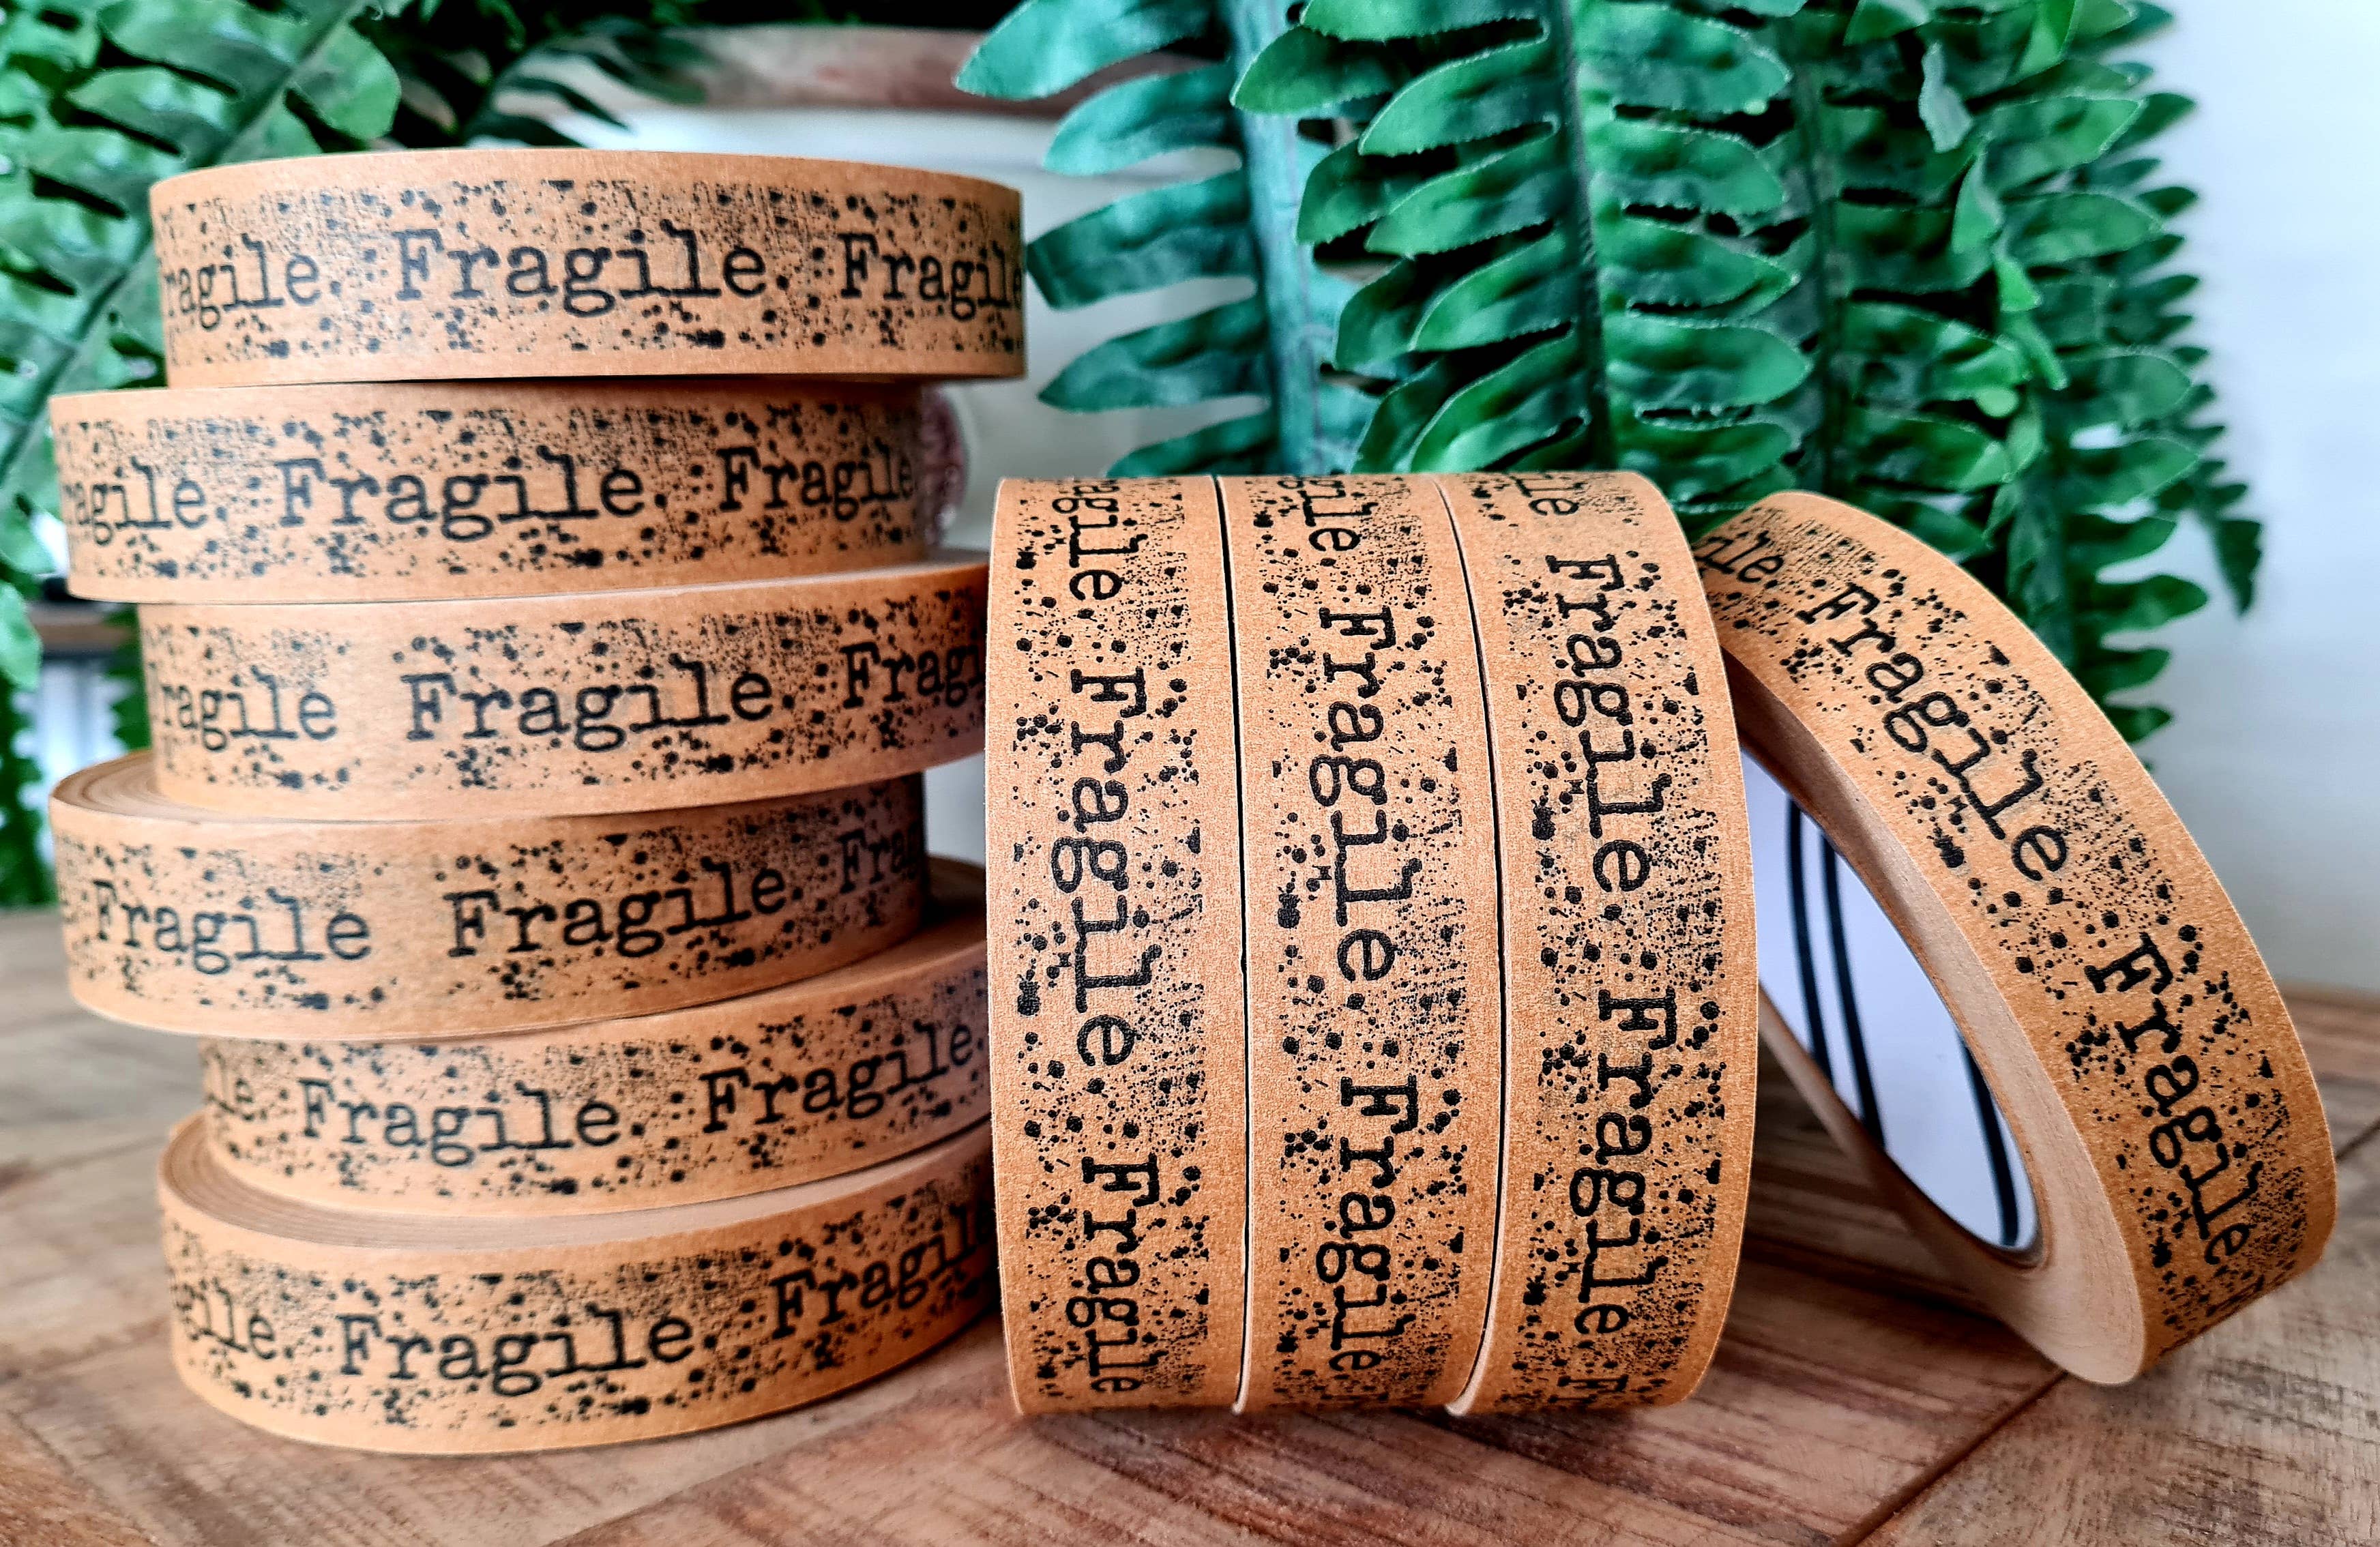 ragile. Fragile. Fragile
ragile. Fragile. Fragile
ragile Fragile. Fragi
Fragile Fragile. Frag
ile. Fragile. Fragile.
gile. Fragile. Fragil
agile. Fragile. Fragile
gile. Fragile. Fragile
ile Fragile. Fragile
ile. Fragile. Fragile